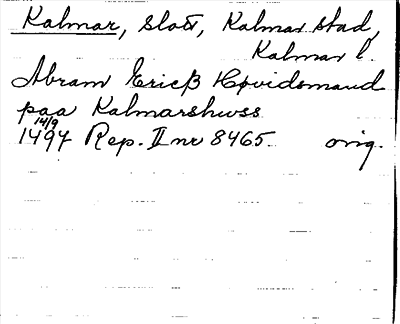 Kalmar, slott, Kalmar stad,
Kalmar l.
Abram Ericß Høvidsmand
paa Kalmarshwss
14/9
1497 Rep. II nr 8465. orig.